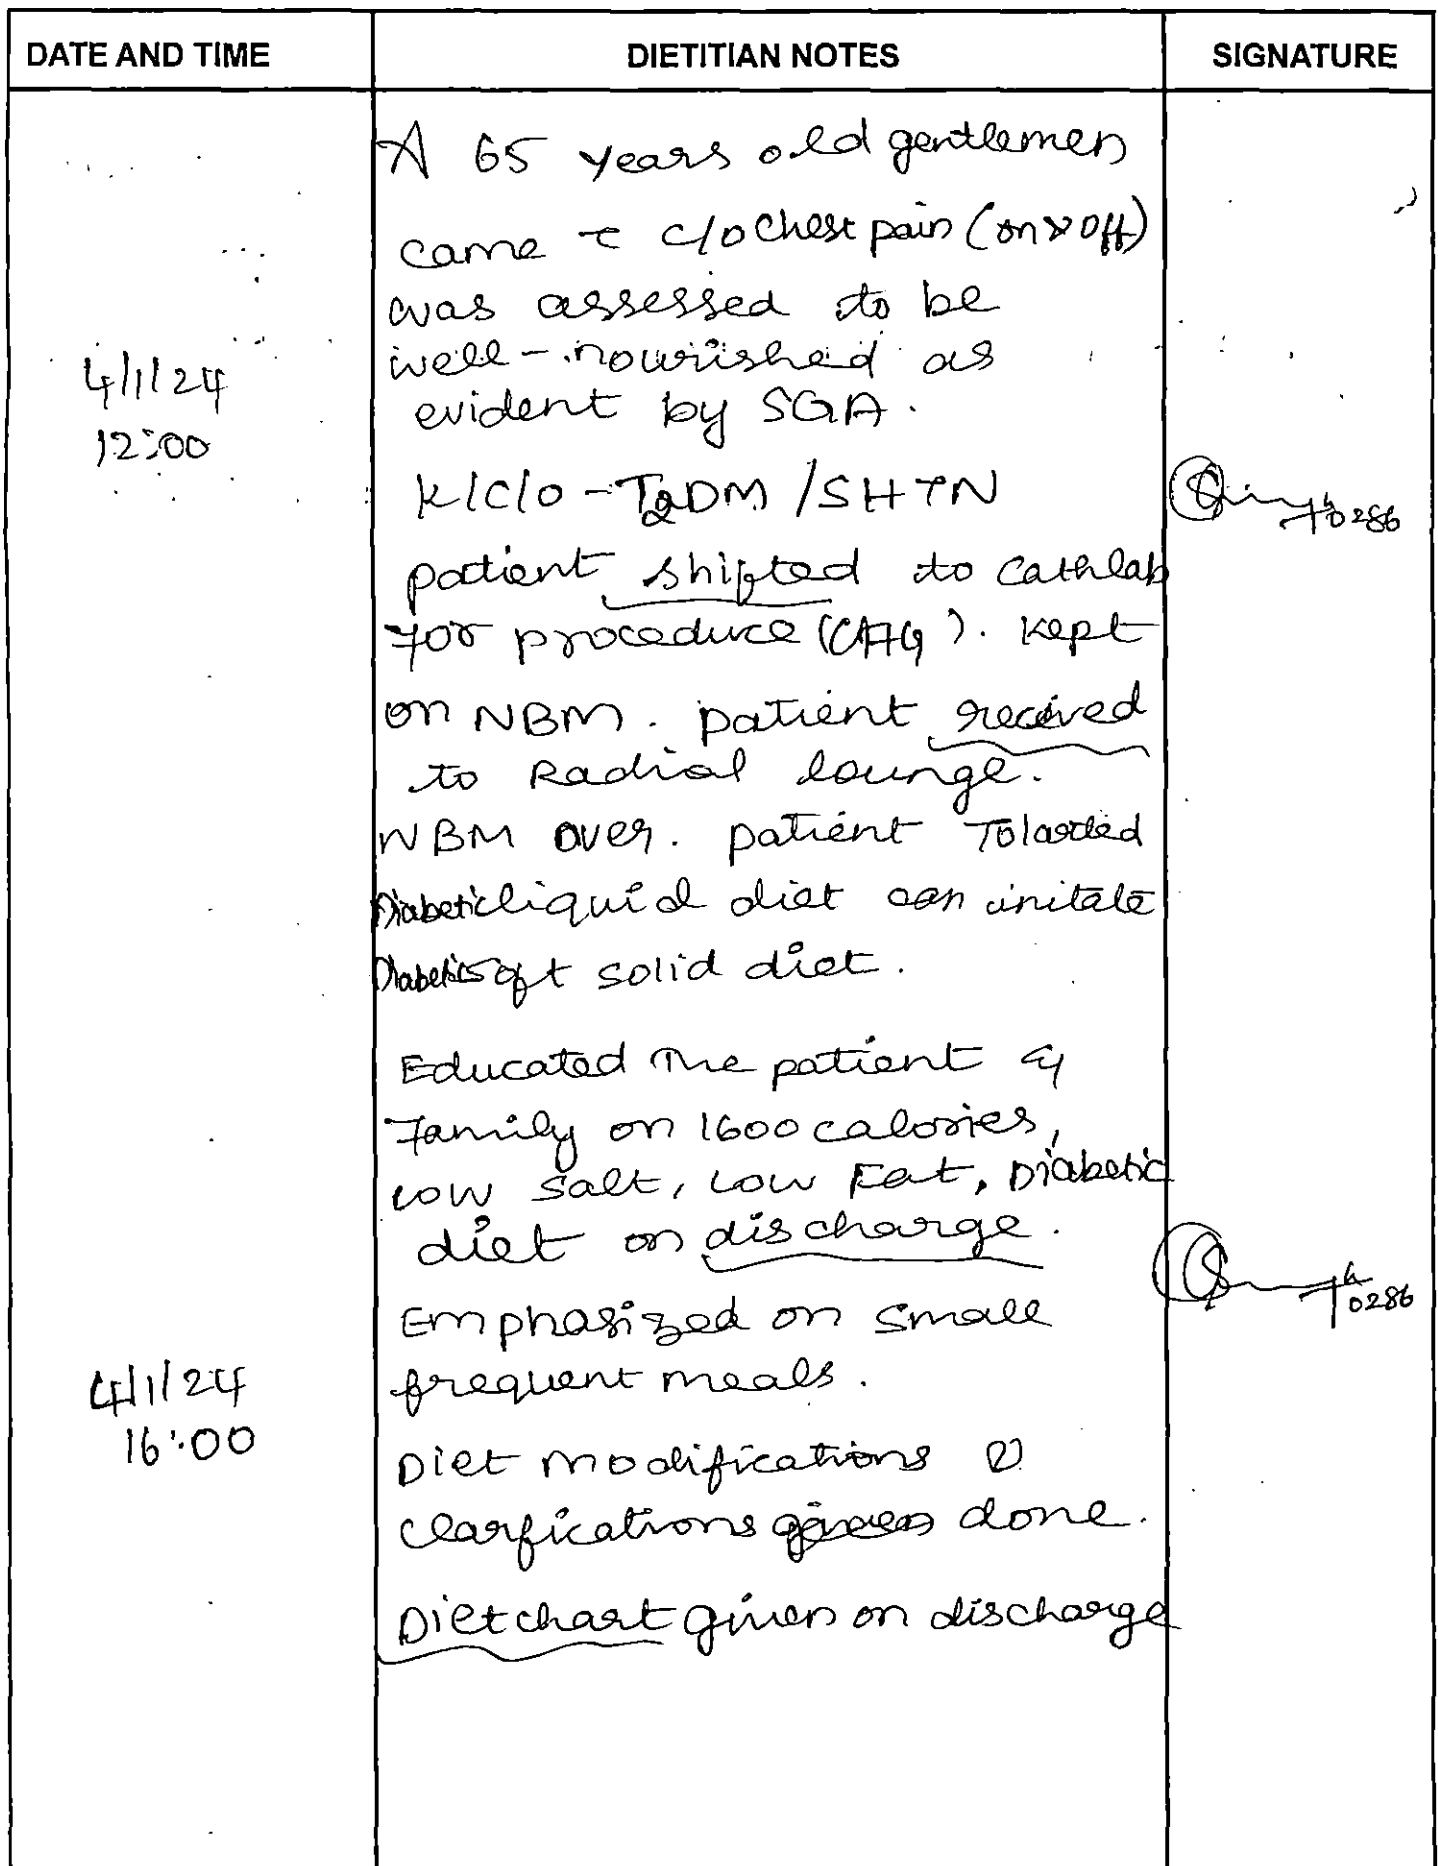 DATE AND TIME DIETITIAN NOTES SIGNATURE
A 65 years old gentlemen
came c̄ c/o Chest pain (on & off)
was assessed to be
well-nourished as
4/1/24
evident by SGA.
12:00
K/C/O - T2DM / SHTN
0286
patient shifted to Cathlab
for procedure (CAG). Kept
on NBM. patient received
to Radial lounge.
NBM over. patient Tolarted
Diabetic liquid diet can initate
Diabetic soft solid diet.
Educated The patient &
Family on 1600 calories,
low salt, Low Fat, Diabetic
diet on discharge.
0286
Emphasized on small
frequent meals.
4/1/24
16:00
Diet modifications &
clarfications given done.
Diet chart given on discharge